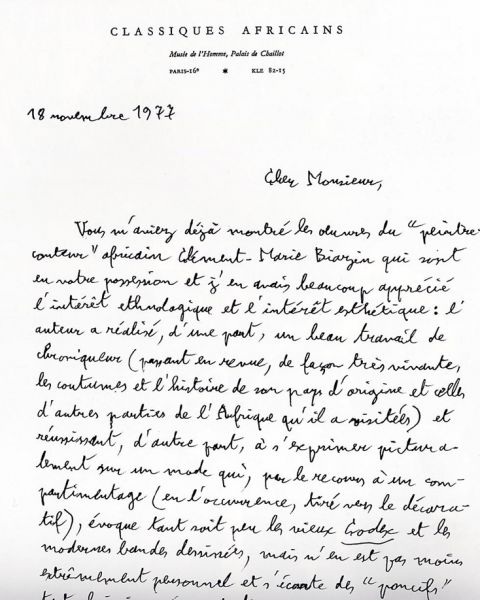 CLASSIQUES AFRICAINS
Musée de l'Homme, Palais de Chaillot
PARIS-16e * KLE 82-15
18 novembre 1977
Cher Monsieur,
Vous m'aviez déjà montré les œuvres du "peintre-
conteur" africain Clément-Marie Biazin qui sont
en votre possession et j'en avais beaucoup apprécié
l'intérêt ethnologique et l'intérêt esthétique : l'
auteur a réalisé, d'une part, un beau travail de
chroniqueur (passant en revue, de façon très vivante,
les coutumes et l'histoire de son pays d'origine et celles
d'autres parties de l'Afrique qu'il a visitées) et
réussissant, d'autre part, à s'exprimer pictura-
lement sur un mode qui, par le recours à un com-
partimentage (en l'occurrence, tiré vers le décora-
tif), évoque tant soit peu les vieux Codex et les
modernes bandes dessinées, mais n'en est pas moins
extrêmement personnel et s'écarte des "poncifs"